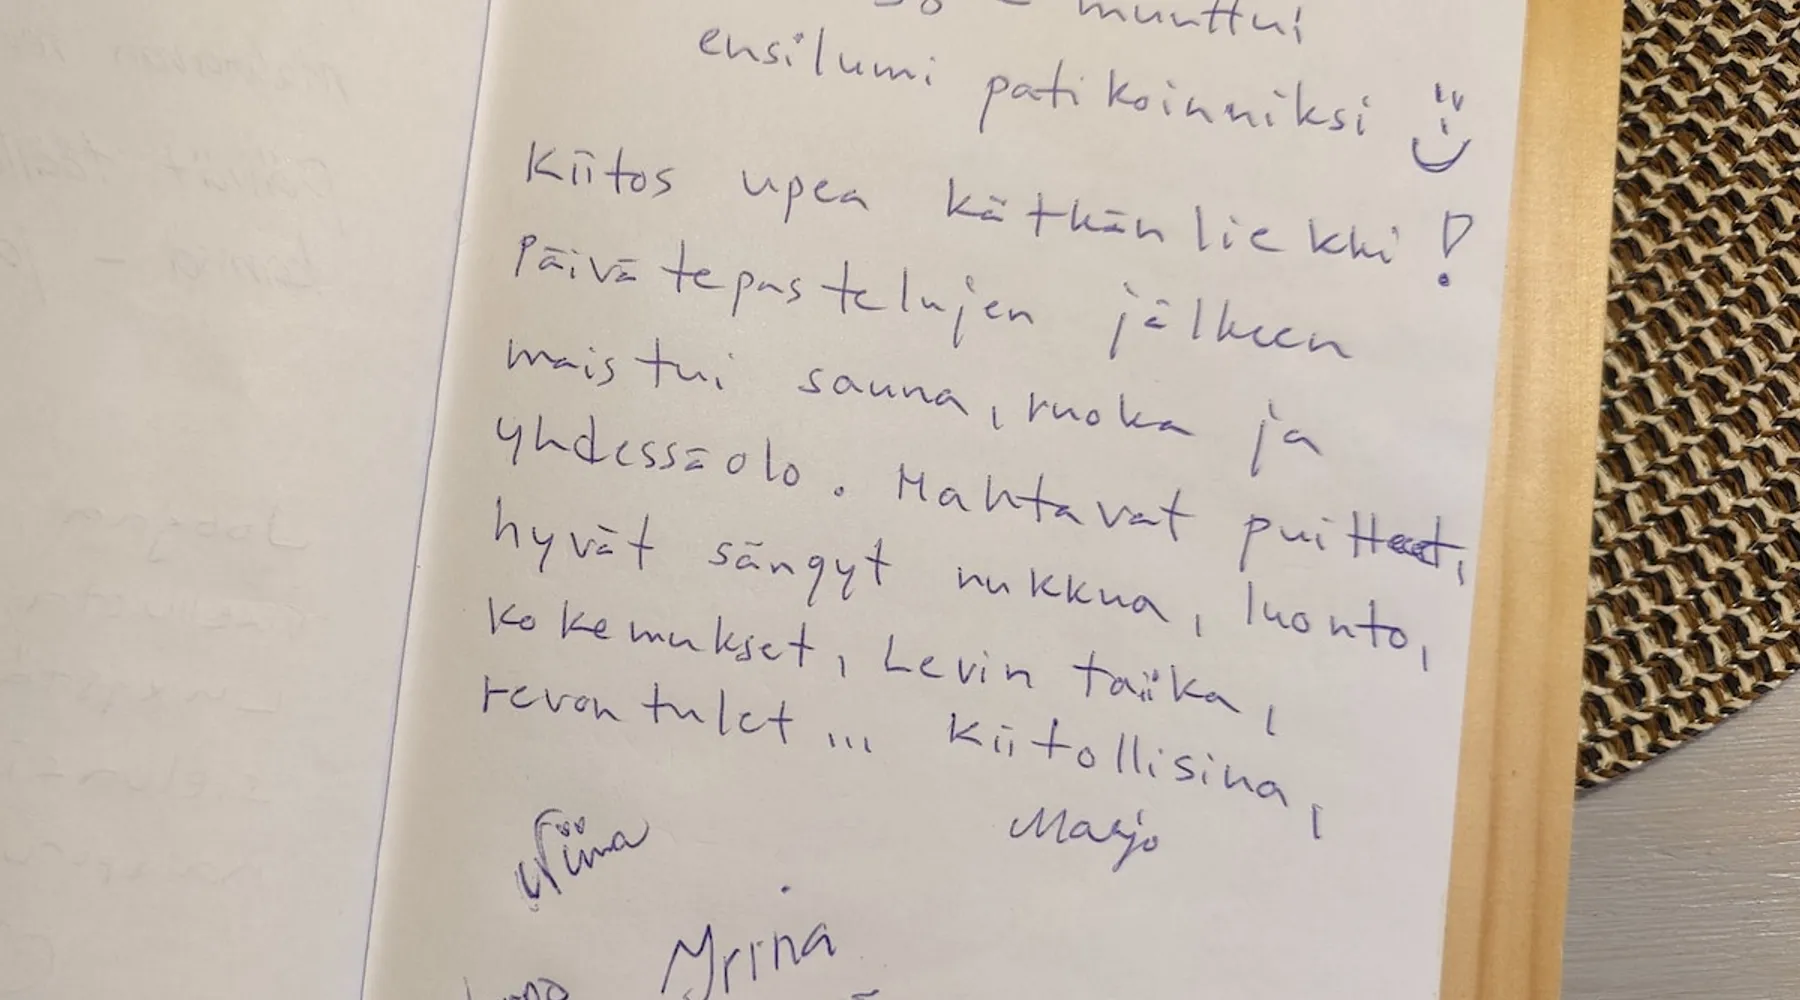 muuttui
ensilumi patikoinniksi
Kiitos upea kätkänliekki!
Päivätepastelujen jälkeen
maistui sauna, ruoka ja
yhdessäolo. Mahtavat puitteet,
hyvät sängyt nukkua, luonto,
kokemukset, Levin taika,
revontulet... Kiitollisina,
Niina Marjo
Irina